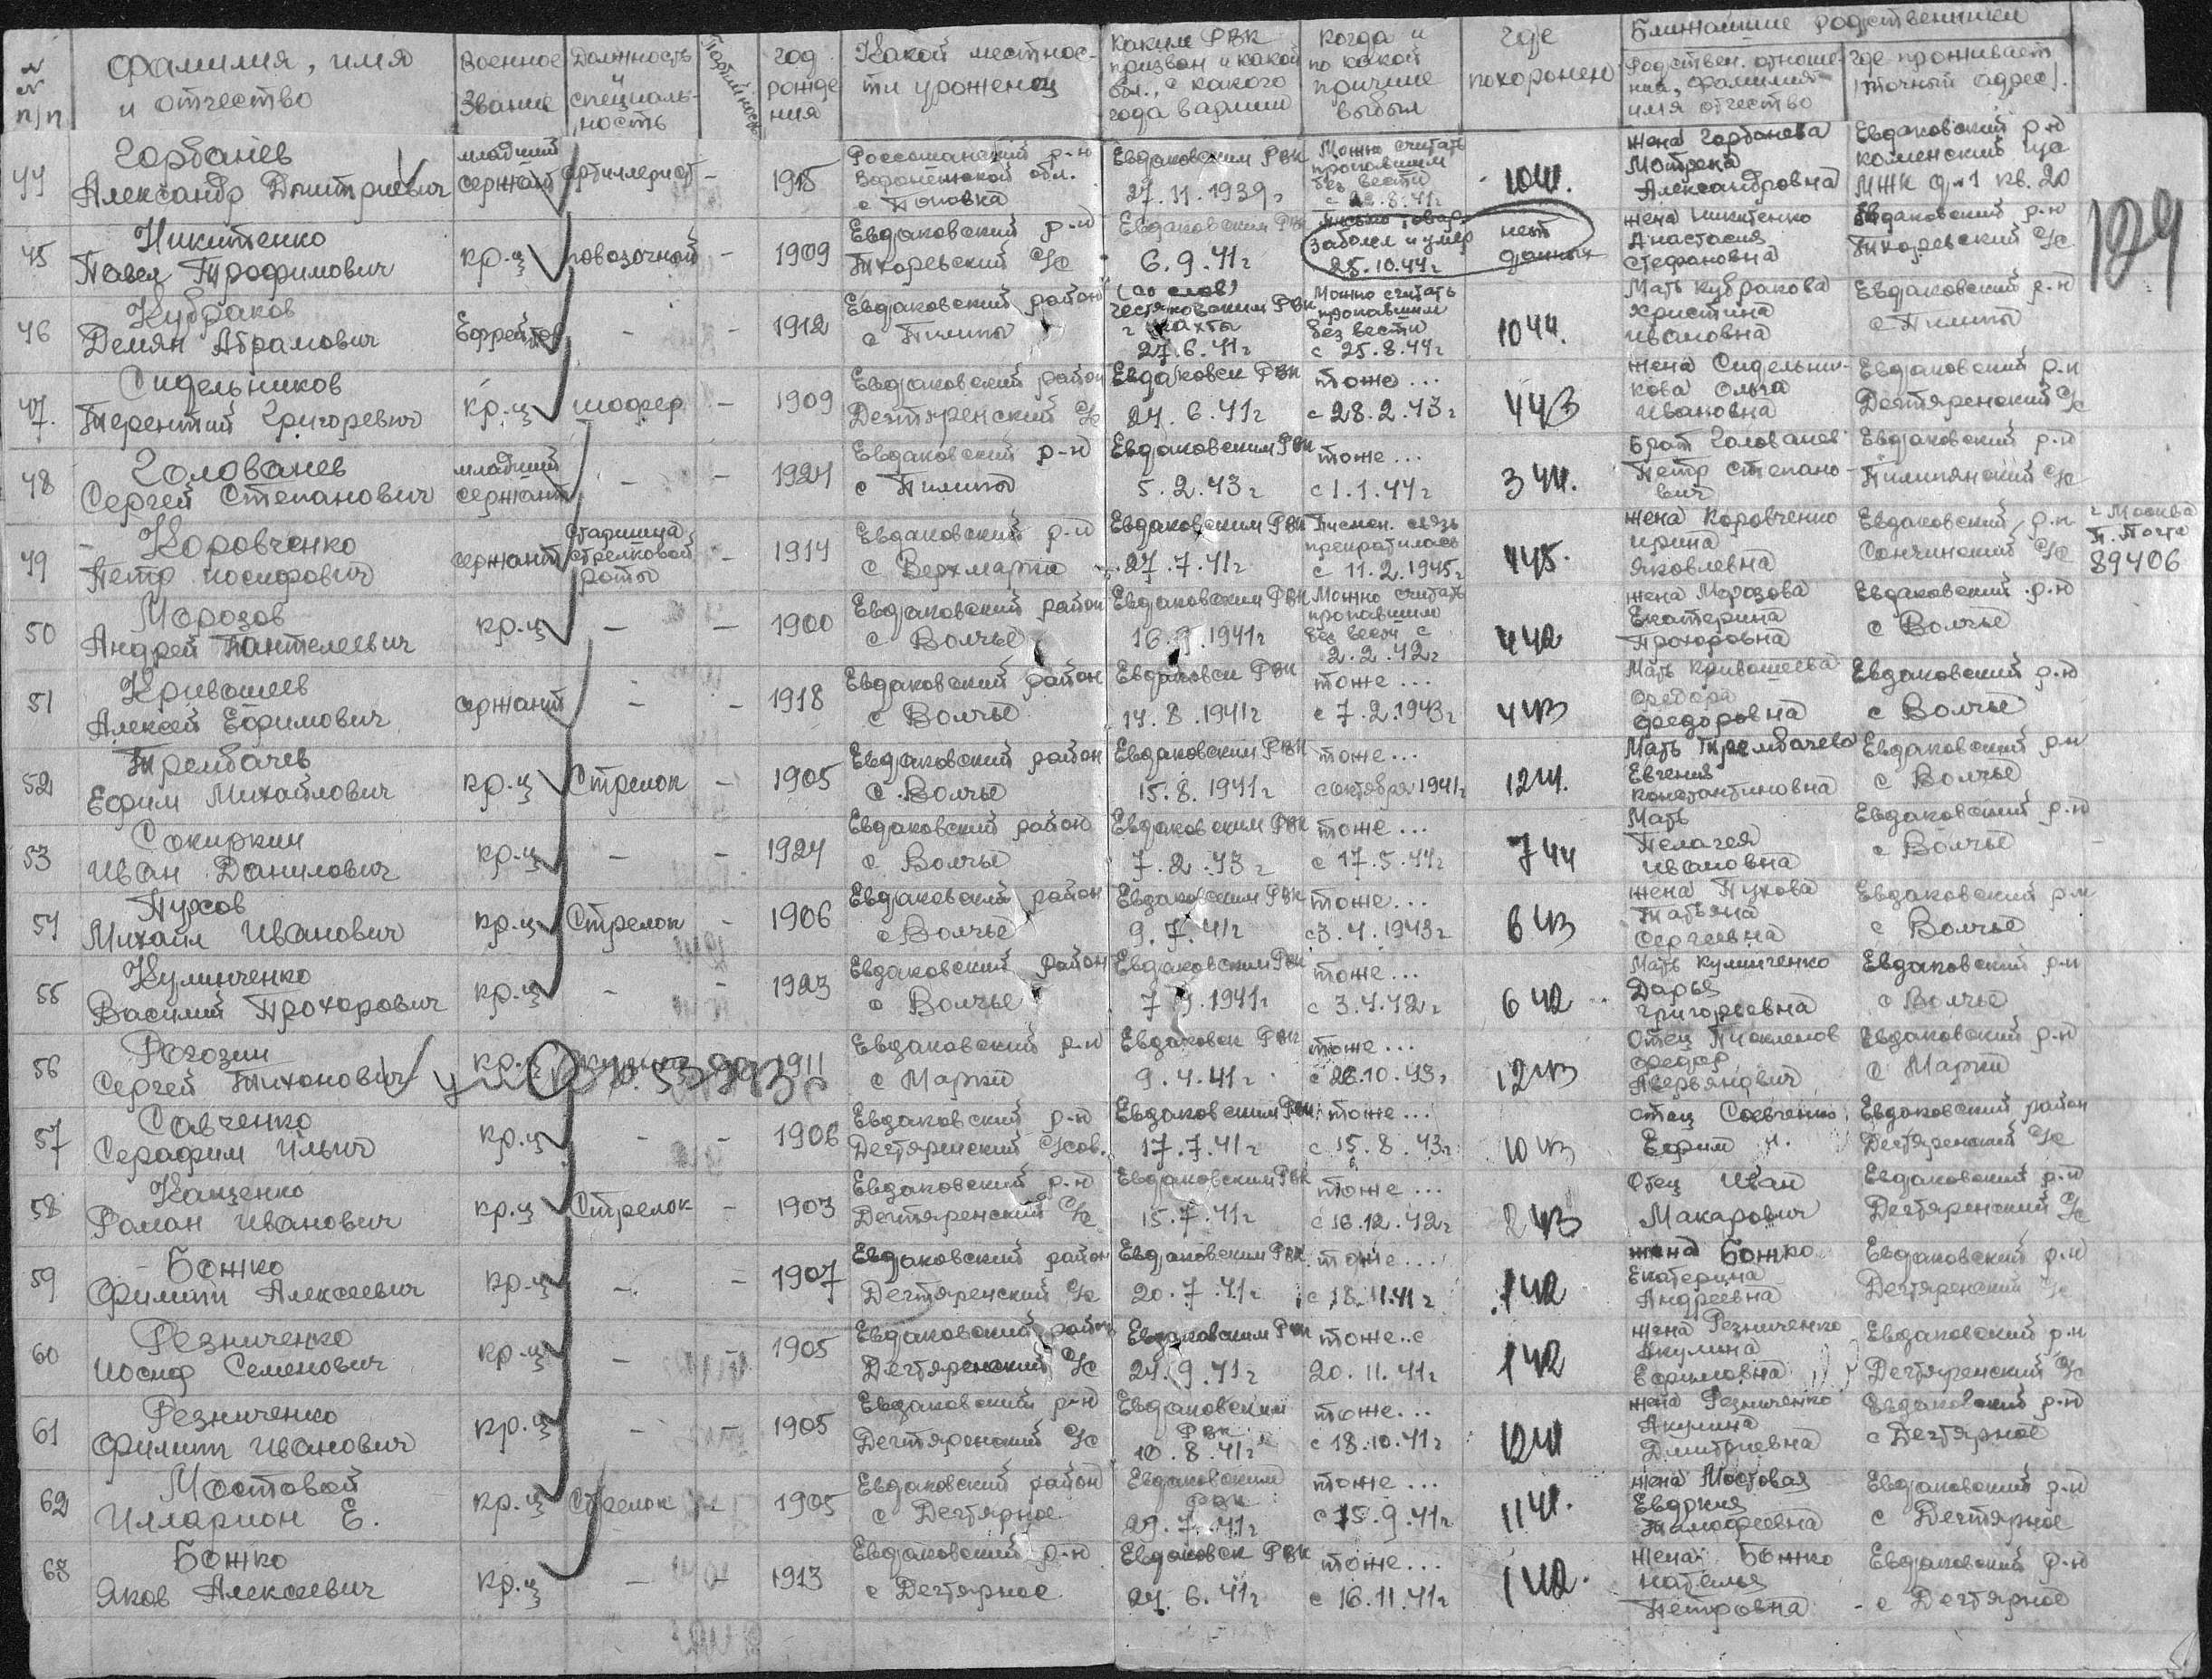 № № п/п
Фамилия, имя и отчество
Военное звание
Должность и специальность
Партийность
год рождения
Какой местности уроженец
Каким РВК призван и какой обл., с какого года в армии
Когда и по какой причине выбыл
где похоронен
Ближайшие родственники
Родствен. отношение, фамилия имя отчество
где проживает (точный адрес).
44 Горбанев Александр Дмитриевич младший сержант артиллерист - 1915 Россошанский р-н Воронежской обл. с Поповка Евдаковским РВК 27.11.1939г Можно считать пропавшим без вести 1041. жена Горбанева Александровна Евдаковский р-н Каменский МЖК д.1 кв. 20
129
45 Никитенко Павел Трофимович кр-ц повозочный - 1909 Евдаковский р-н Тхоревский С/с Евдаковским РВК 6.9.41г заболел и умер 25.10.44г нет данных жена Никитенко Анастасия Стефановна Евдаковский р-н Тхоревский С/с
46 Кубраков Демян Абрамович Ефрейтор - - 1912 Евдаковский район с Пилипы (со слов) РВК г Шахты 27.6.41г Можно считать пропавшим без вести с 25.8.44г 1044. Мать Кубракова Христина Ивановна Евдаковский р-н с Пилипы
47. Сидельников Терентий Григоревич кр-ц шофер - 1909 Евдаковский район Дегтяренский С/с Евдаковск РВК 24.6.41г тоже... с 28.2.43г 443 жена Сидельникова Ольга Ивановна Евдаковский р-н Дегтяренский С/с
48 Голованев Сергей Степанович младший сержант - - 1924 Евдаковский р-н с Пилипы Евдаковским РВК 5.2.43г тоже... с 1.1.44г 344. Брат Голованев Петр Степанович Евдаковский р-н Пилипянский С/с
49 Коровченко Петр Иосифович сержант Старшина стрелковой роты - 1914 Евдаковский р-н с Верхмарки Евдаковским РВК 27.7.41г Письмен. связь прекратилась с 11.2.1945г 445. жена Коровченко Ирина Яковлевна Евдаковский р-н Сончинский С/с г Москва П. Почта 89406
50 Морозов Андрей Пантелеевич кр-ц - - 1900 Евдаковский район с Волчье Евдаковским РВК 16.9.1941г Можно считать пропавшим без вести с 2.2.42г 442 жена Морозова Екатерина Прохоровна Евдаковский р-н с Волчье
51 Кривошеев Алексей Ефимович сержант - - 1918 Евдаковский район с Волчье Евдаковск РВК 14.8.1941г тоже... с 7.2.1943г 443 Мать Кривошеева Федора Федоровна Евдаковский р-н с Волчье
52 Трембачев Ефим Михайлович кр-ц Стрелок - 1905 Евдаковский район с Волчье Евдаковским РВК 15.8.1941г тоже... с октября 1941г 1241. Мать Трембачева Евгения Константиновна Евдаковский р-н с Волчье
53 Сокиркин Иван Данилович кр-ц - - 1924 Евдаковский район с Волчье Евдаковским РВК 7.2.43г тоже... с 17.5.44г 744 Мать Пелагея Ивановна Евдаковский р-н с Волчье
54 Пухов Михаил Иванович кр-ц Стрелок - 1906 Евдаковский район с Волчье Евдаковским РВК 9.7.41г тоже... с 3.4.1943г 643 жена Пухова Татьяна Сергеевна Евдаковский р-н с Волчье
55 Кулинченко Василий Прохорович кр-ц - - 1923 Евдаковский район с Волчье Евдаковским РВК 7.9.1941г тоже... с 3.4.42г 642 Мать Кулинченко Дарья Григорьевна Евдаковский р-н с Волчье
56 Рогозин Сергей Тихонович кр-ц 1911 Евдаковский р-н с Марки Евдаковск РВК 9.4.41г тоже... с 26.10.43г 1243 Отец Федор Аверьянович Евдаковский р-н с Марки
57 Савченко Серафим Ильич кр-ц - - 1906 Евдаковский р-н Дегтяренский С/сов. Евдаковским РВК 17.7.41г тоже... с 15.8.43г 1043 отец Савченко Ефим И. Евдаковский район Дегтяренский С/с
58 Кащенко Роман Иванович кр-ц Стрелок - 1903 Евдаковский р-н Дегтяренский С/с Евдаковским РВК 15.7.41г тоже... с 16.12.42г 243 Отец Иван Макарович Евдаковский р-н Дегтяренский С/с
59 Божко Филипп Алексеевич кр-ц - - 1907 Евдаковский район Дегтяренский С/с Евдаковским РВК 20.7.41г тоже... с 18.11.41г 142 жена Божко Екатерина Андреевна Евдаковский р-н Дегтяренский С/с
60 Резниченко Иосиф Семенович кр-ц - - 1905 Евдаковский район Дегтяренский С/с Евдаковским РВК 24.9.41г тоже..с 20.11.41г 142 жена Резниченко Акулина Ефимовна Евдаковский р-н Дегтяренский С/с
61 Резниченко Филипп Иванович кр-ц - - 1905 Евдаковский р-н Дегтяренский С/с Евдаковским РВК 10.8.41г тоже... с 18.10.41г 1241 жена Резниченко Акулина Дмитриевна Евдаковский р-н с Дегтярное
62 Мостовой Илларион Е. кр-ц Стрелок - 1905 Евдаковский район с Дегтярное Евдаковским РВК 29.7.41г тоже... с 15.9.41г 1141. жена Мостовая Евдокия Тимофеевна Евдаковский р-н с Дегтярное
63 Божко Яков Алексеевич кр-ц - - 1913 Евдаковский р-н с Дегтярное Евдаковск РВК 24.6.41г тоже... с 16.11.41г 142. жена Божко Наталья Петровна Евдаковский р-н с Дегтярное